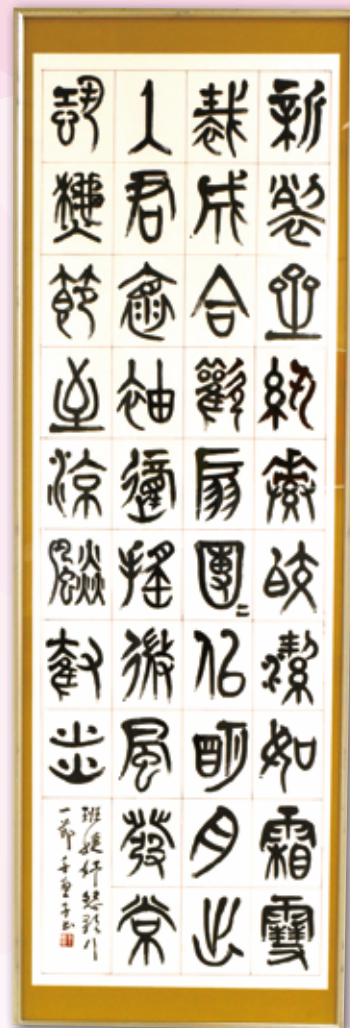 新裂齊紈素皎潔如霜雪
裁成合歡扇團〻似明月出
入君懷袖動搖微風發常
恐秋節至涼飆奪炎
班婕妤怨歌行
一節